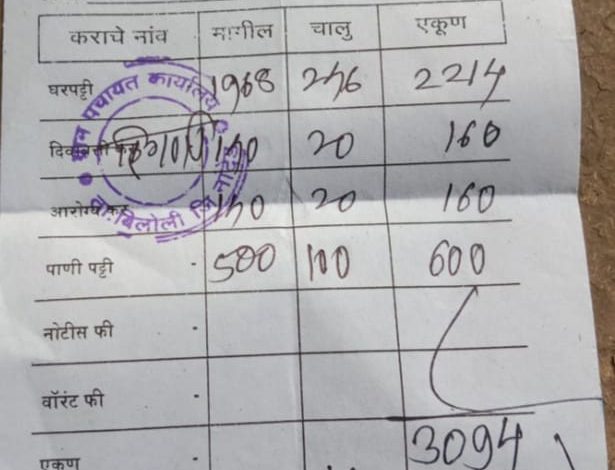 कराचे नांव मागील चालु एकूण
घरपट्टी 1968 246 2214
140 20 160
आरोग्य कर 140 20 160
पाणी पट्टी 500 100 600
नोटीस फी
वॉरंट फी
एकूण 3094
पंचायत कार्यालय
ता. बिलोली जि. नांदेड